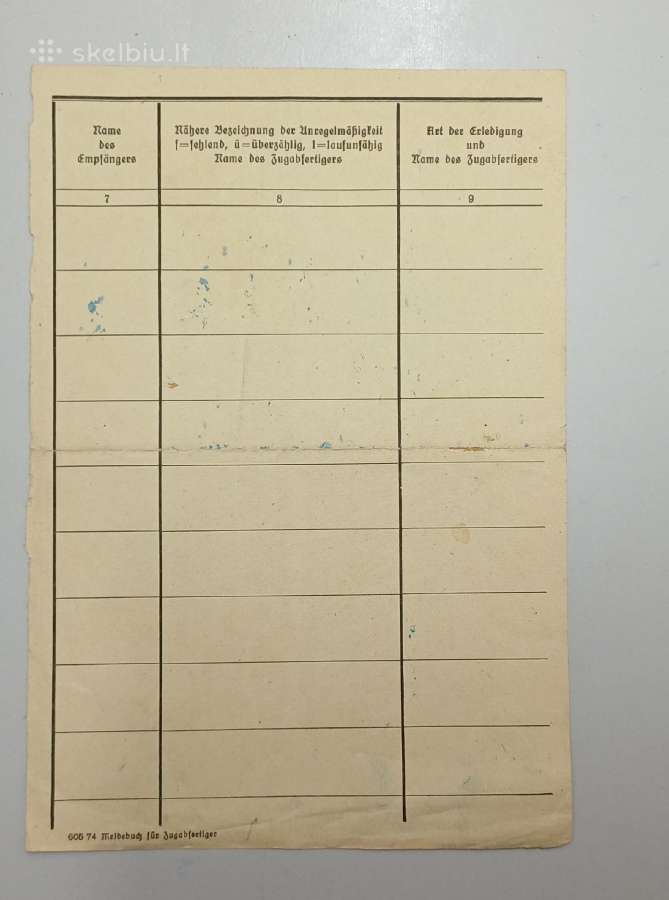 skelbiu.lt
Name
des
Empfängers
Nähere Bezeichnung der Unregelmäßigkeit
f=fehlend, ü=überzählig, l=laufunfähig
Name des Zugabfertigers
Art der Erledigung
und
Name des Zugabfertigers
7
8
9
605 74 Meldebuch für Zugabfertiger